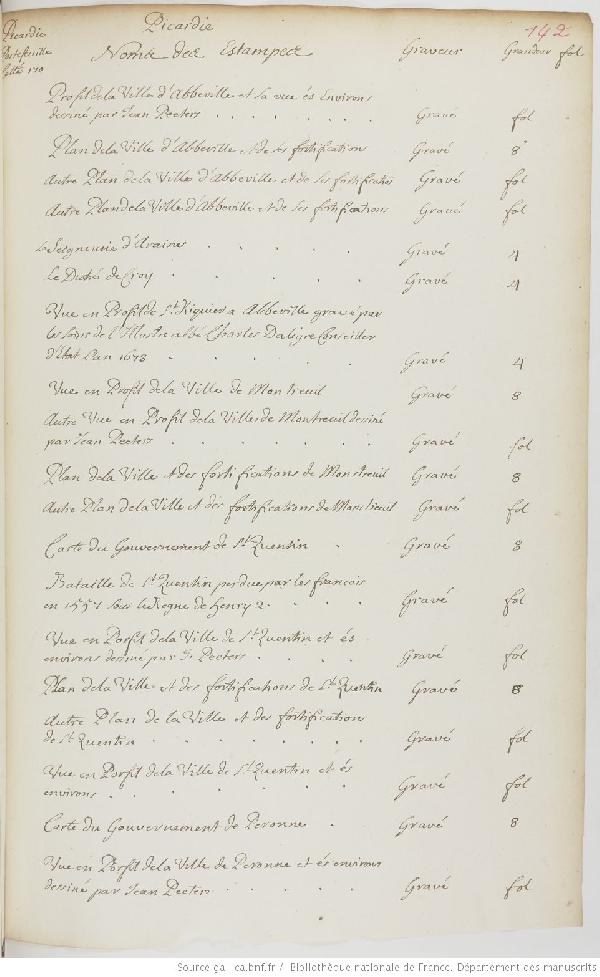 Picardie
Portefeuille
Cotté 110
Picardie
142
Noms des Estampes Graveurs Grandeur fol
Profil de la Ville d'Abbeville et sa vue és Environs
desiné par Jean Peeters Gravé fol
Plan de la Ville d'Abbeville et de ses fortification Gravé 8°
Autre Plan de la Ville d'Abbeville et de ses fortificatio Gravé fol
Autre Plan de la Ville d'Abbeville et de ses fortifications Gravé fol
La Seigneurie d'Araines Gravé 4
Le Duché de Croy Gravé 4
Vue en Profil de St Riquier a Abbeville gravé par
les soins de l'Illustre abbé Charles Daligre Conseider
d'Etat L'an 1678 Gravé 4
Vue en Profil de la Ville de Montreuil Gravé 8
Autre Vue en Profil de la Ville de Montreuil desiné
par Jean Peeters Gravé fol
Plan de la Ville et des fortifications de Monstreuil Gravé 8
Autre Plan de la Ville et des fortifications de Monstreuil Gravé fol
Carte du Gouvernement de St Quentin Gravé 8
Bataille de St Quentin perdue par les francois
en 1557 sous le Regne de Henry 2 Gravé fol
Vue en Porfil de la Ville de St Quentin et és
environs desiné par J. Peeters Gravé fol
Plan de la Ville et des fortifications de St Quentin Gravé 8
Autre Plan de la Ville et des fortification
de St Quentin Gravé fol
Vue en Porfil de la Ville de St Quentin et és
environs Gravé fol
Carte du Gouvernement de Peronne Gravé 8
Vue en Porfil de la Ville de Peronne et és environs
desiné par Jean Peeters Gravé fol
Source gallica.bnf.fr / Bibliothèque nationale de France. Département des manuscrits